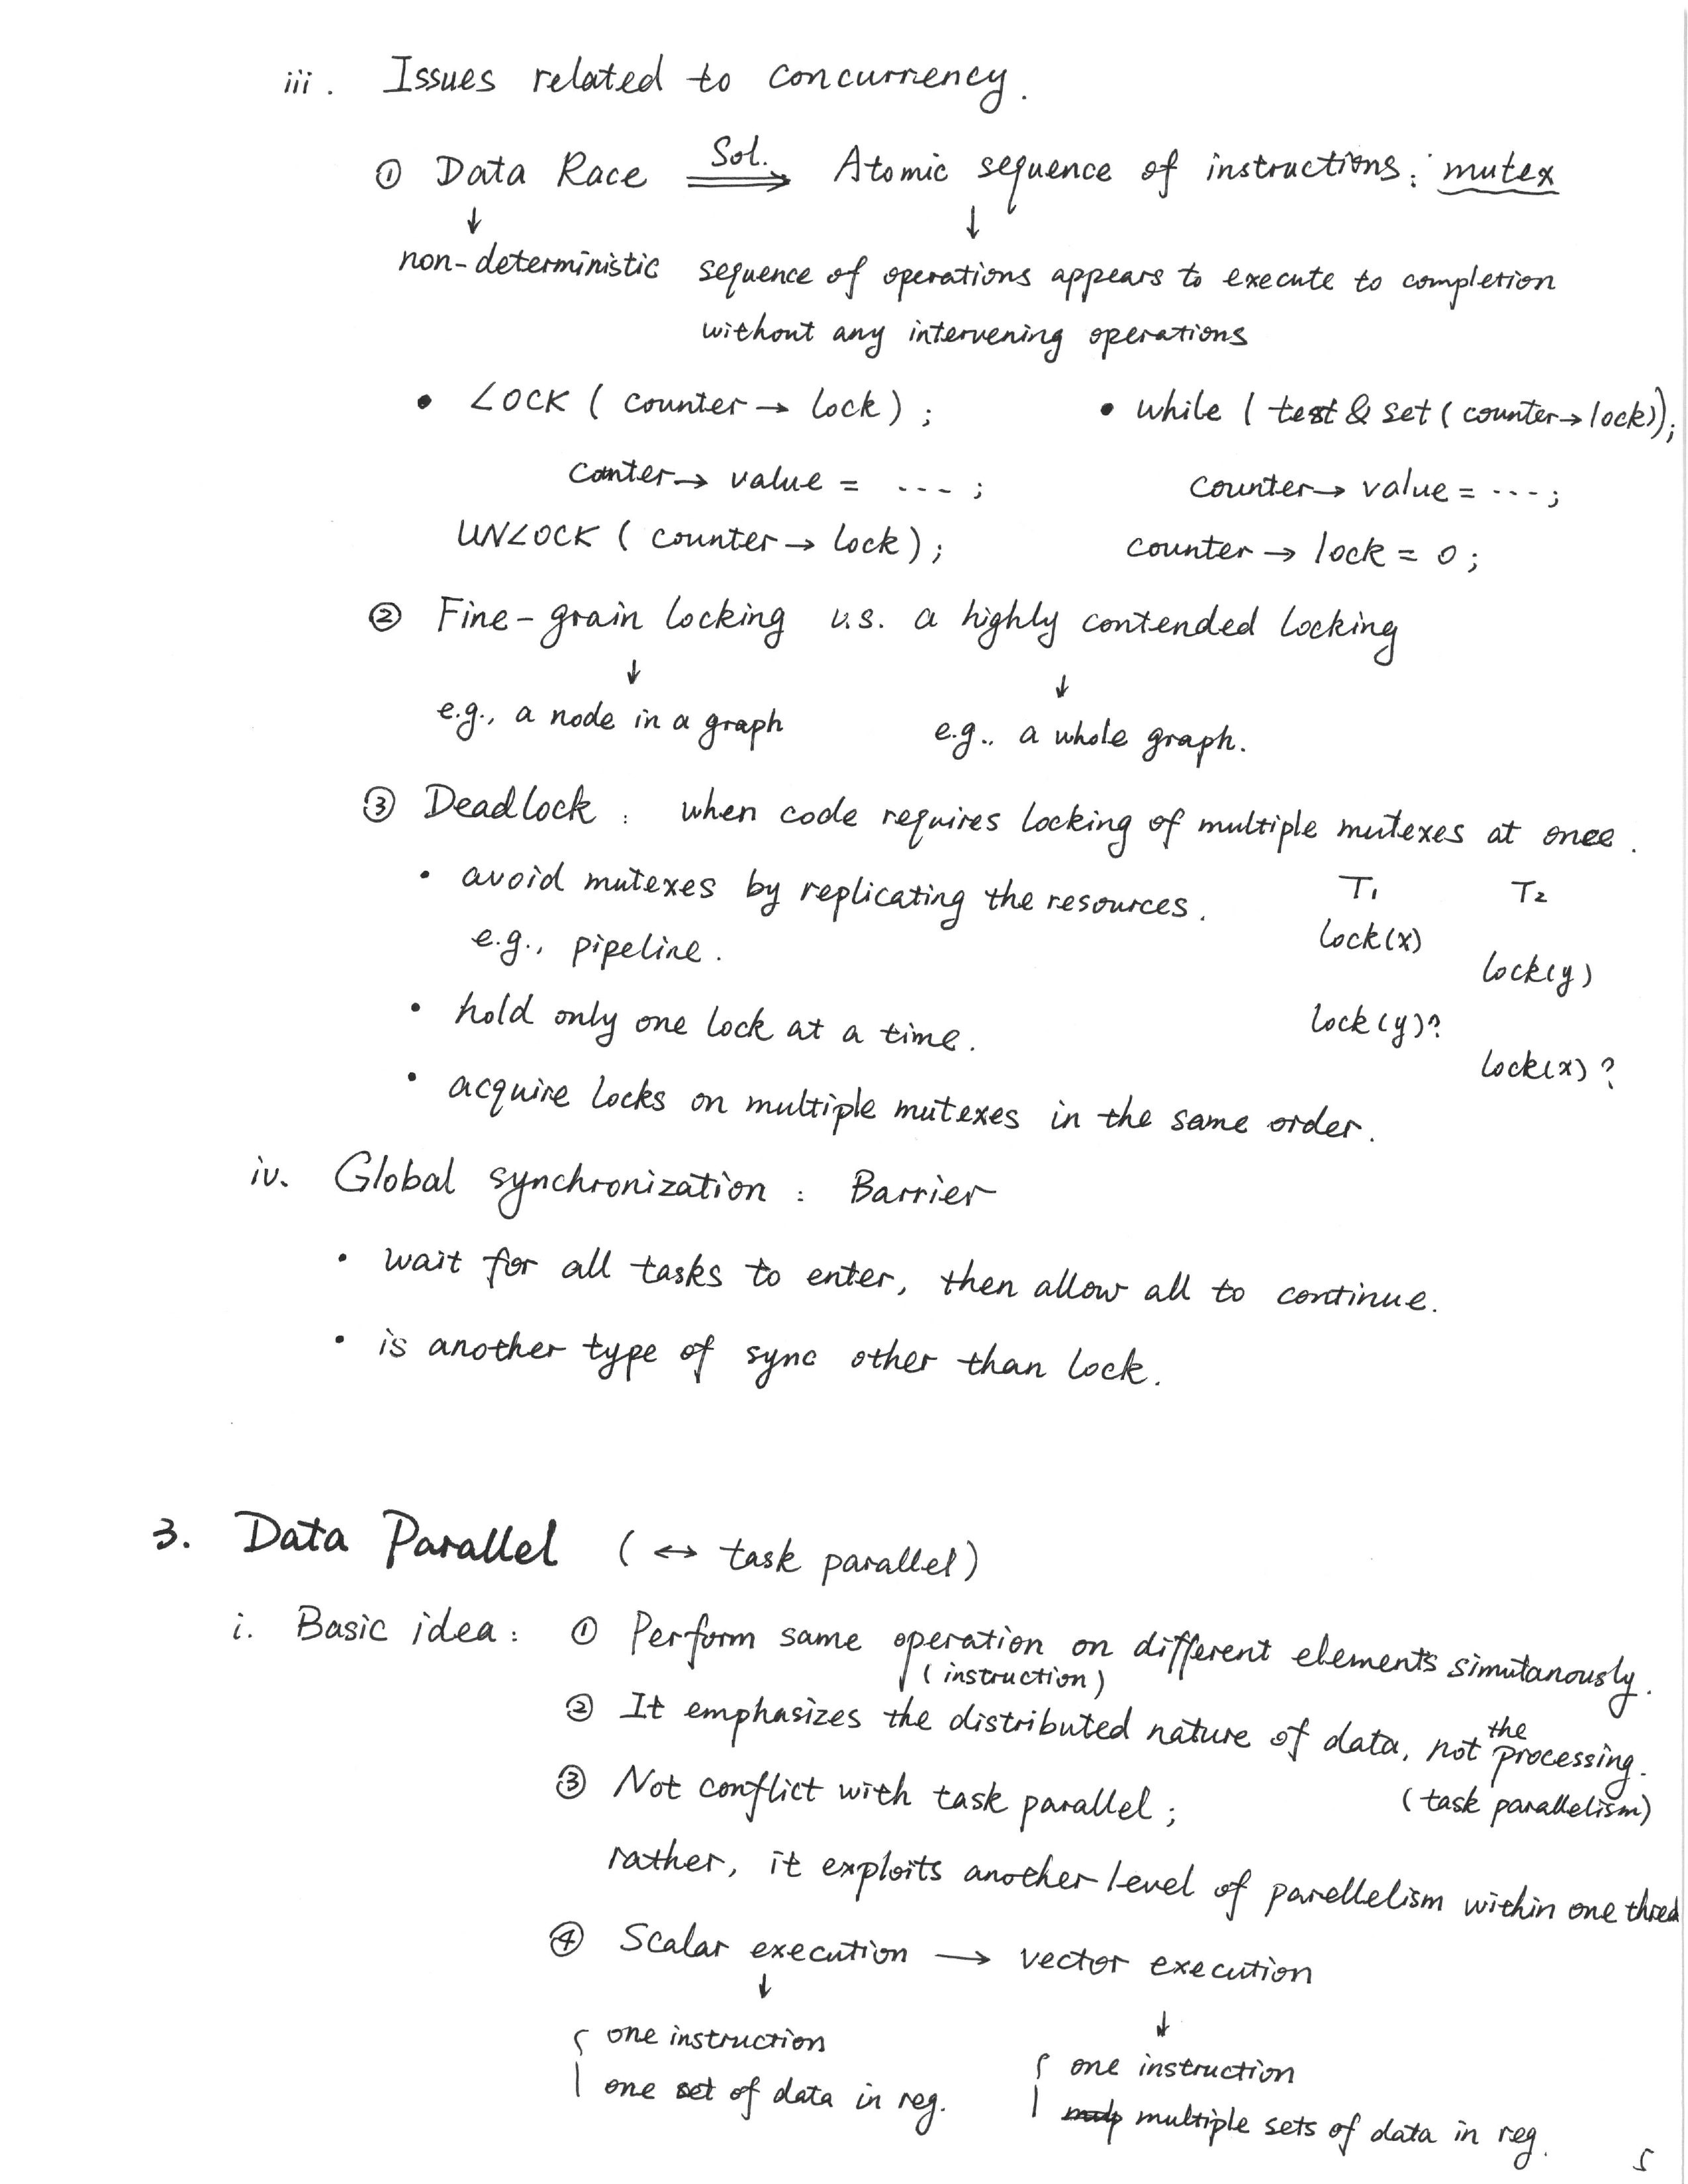 iii. Issues related to concurrency.
① Data Race Sol. ⟹ Atomic sequence of instructions: mutex
↓ ↓
non-deterministic sequence of operations appears to execute to completion
without any intervening operations
• LOCK ( counter → lock ) ; • while ( test & set ( counter → lock ) ) ;
conter → value = --- ; counter → value = --- ;
UNLOCK ( counter → lock ) ; counter → lock = 0 ;
② Fine-grain locking v.s. a highly contended locking
↓ ↓
e.g., a node in a graph e.g., a whole graph.
③ Deadlock : when code requires locking of multiple mutexes at once.
• avoid mutexes by replicating the resources. T1 T2
e.g., pipeline. lock(x)
lock(y)
• hold only one lock at a time. lock(y)?
lock(x)?
• acquire locks on multiple mutexes in the same order.
iv. Global synchronization : Barrier
• wait for all tasks to enter, then allow all to continue.
• is another type of sync other than lock.
3. Data Parallel ( ↔ task parallel )
i. Basic idea : ① Perform same operation on different elements simutanously.
( instruction )
② It emphasizes the distributed nature of data, not the processing.
( task parallelism )
③ Not conflict with task parallel ;
rather, it exploits another level of parellelism within one thred
④ Scalar execution → vector execution
↓ ↓
{ one instruction { one instruction
one set of data in reg. multiple sets of data in reg.
5